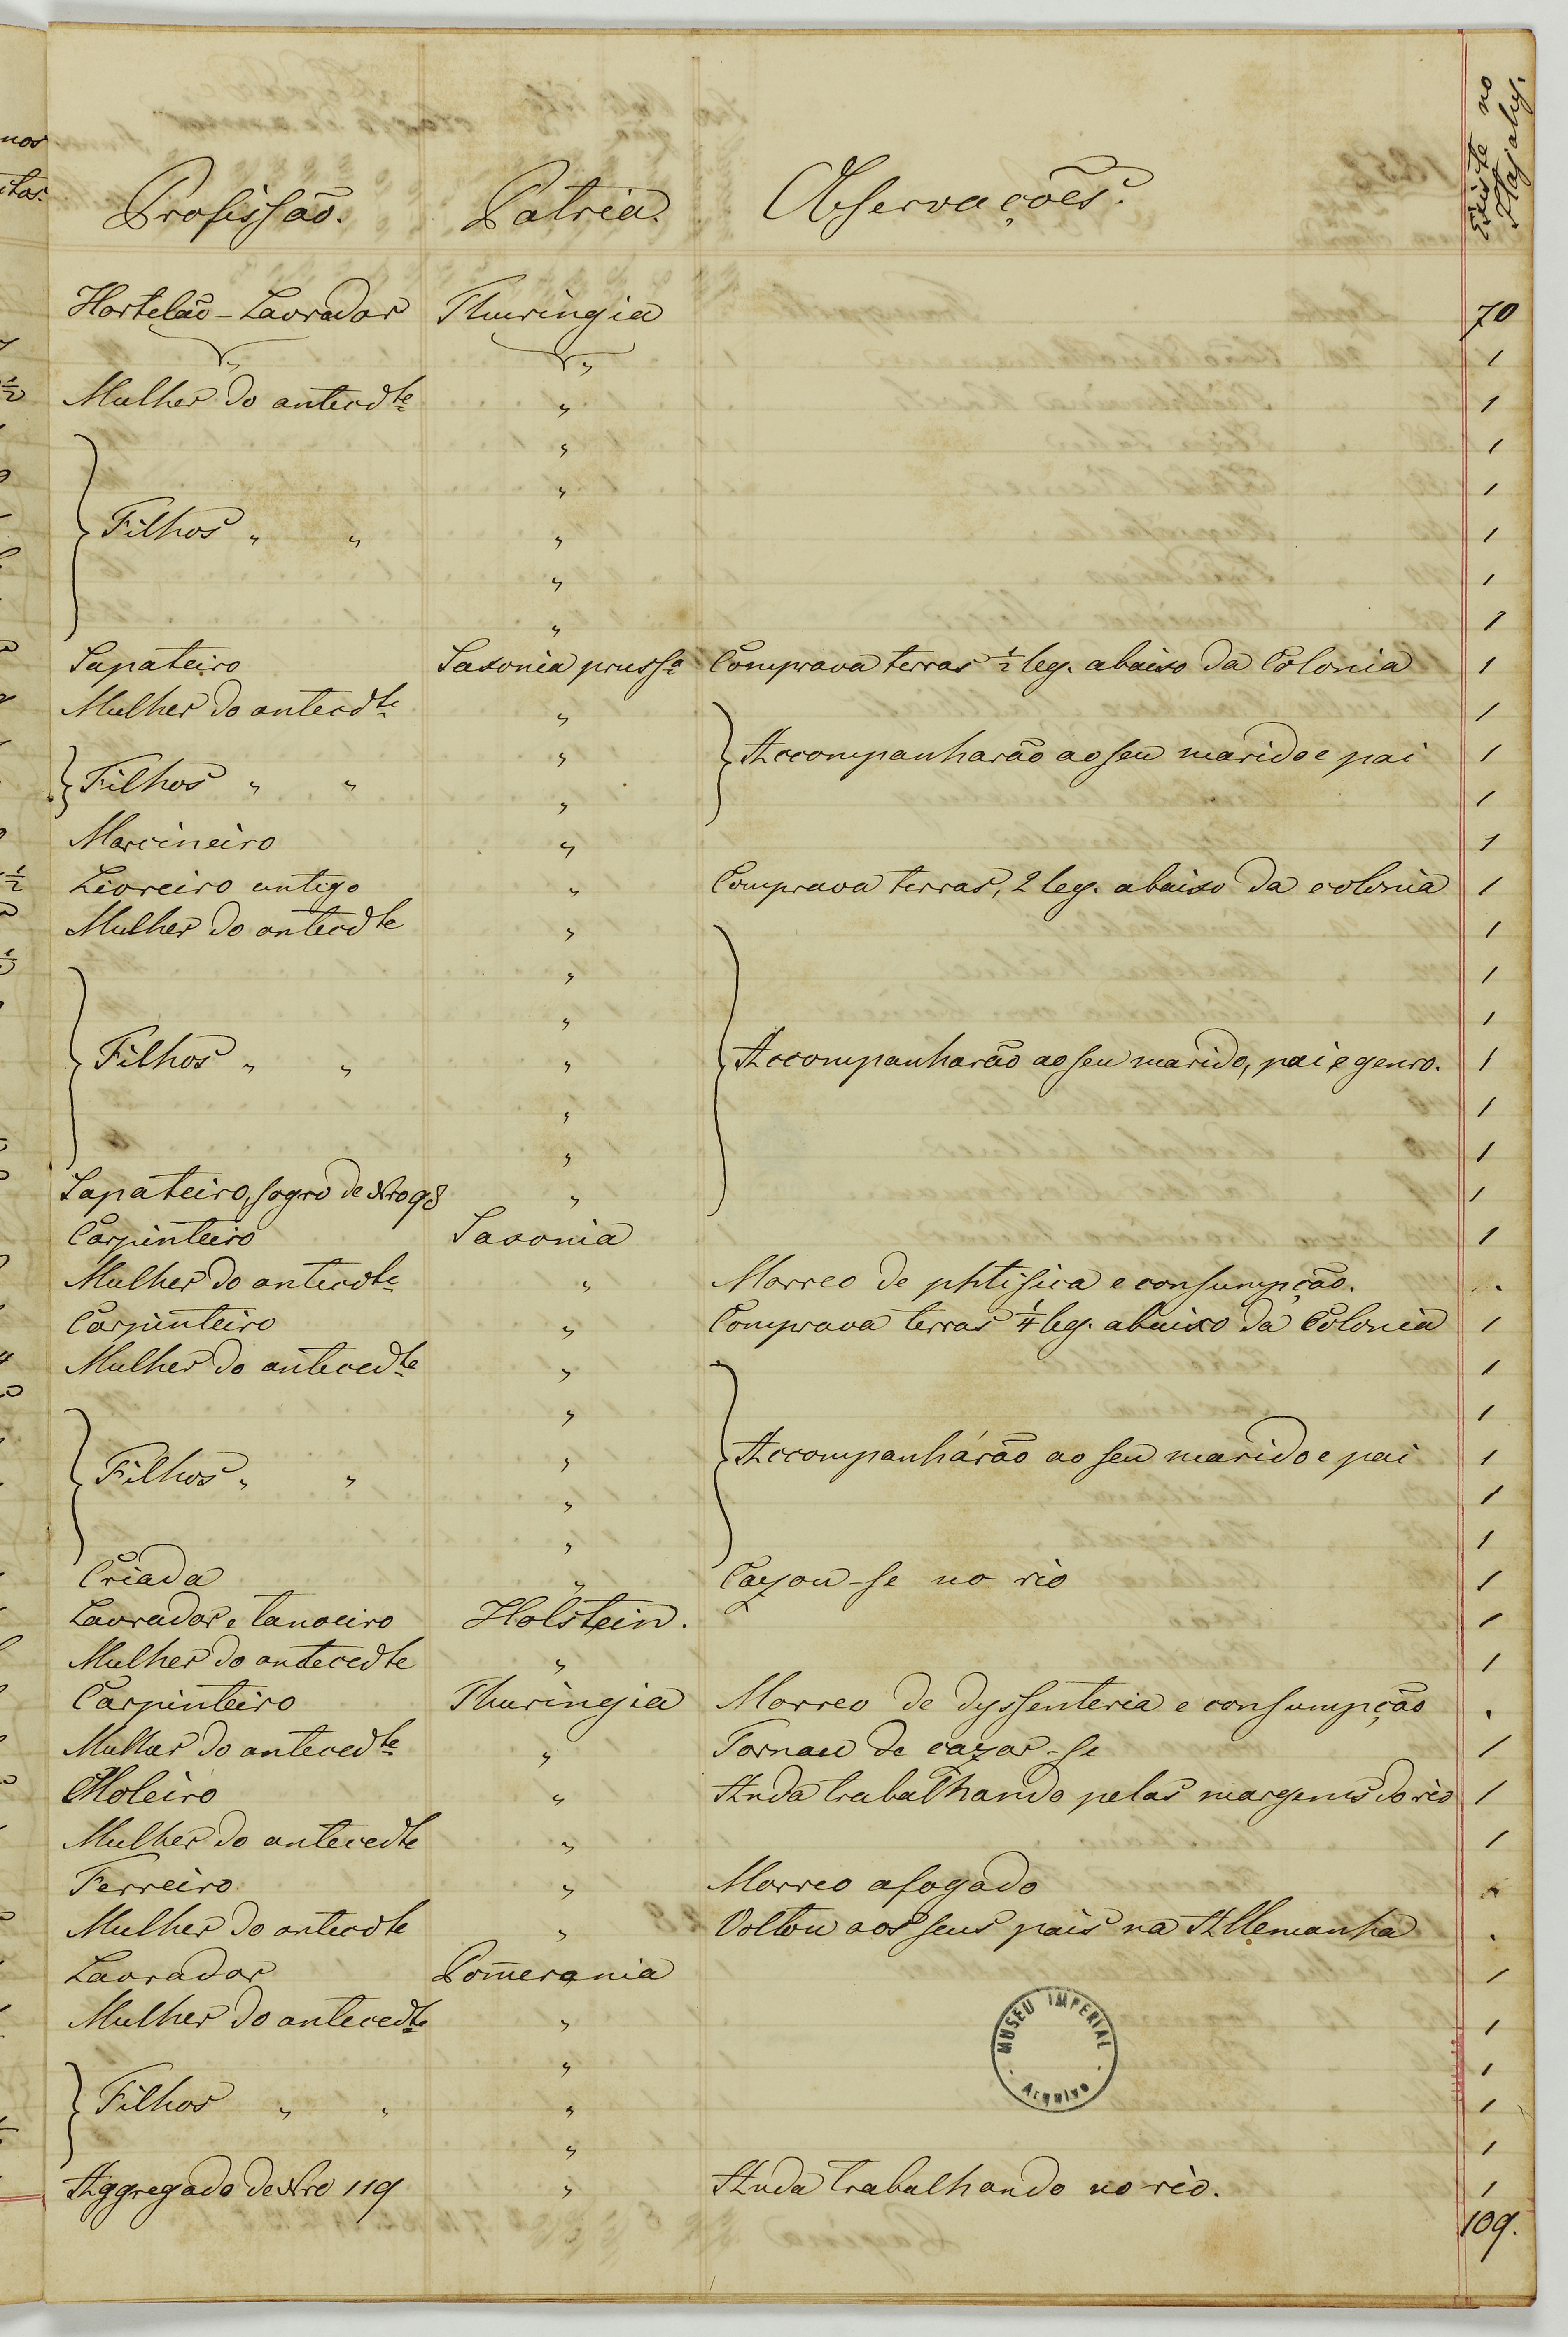 nos
itos.
Profissão. Patria. Observações. Existe no Itajahy.
Hortelão - Lavrador Thuringia 70
" " 1
Mulher do antecdte " 1
" 1
" 1
Filhos " " " 1
" 1
" 1
Sapateiro Saxonia prussa Comprava terras 1/2 leg. abaixo da Colonia 1
Mulher do antecdte " 1
" Accompanharão ao seu marido e pai 1
Filhos " " " 1
Marcineiro " 1
Livreiro antigo " Comprava terras, 2 leg. abaixo da colonia 1
Mulher do antecdte " 1
" 1
" 1
Filhos " " " Accompanharão ao seu marido, pai e genro. 1
" 1
" 1
Sapateiro, sogro de Nro 98 " 1
Carpinteiro Saxonia 1
Mulher do antecdte " Morreo de phtisica e consumpção. .
Carpinteiro " Comprava terras 1/4 leg. abaixo da Colonia 1
Mulher do antecedte " 1
" 1
Filhos " " " Accompanhárão ao seu marido e pai 1
" 1
" 1
Criada " Cazou-se no rio 1
Lavrador e tanoeiro Holstein. 1
Mulher do antecedte " 1
Carpinteiro Thuringia Morreo de dyssenteria e consumpção .
Mulher do antecedte " Tornou de cazar-se 1
Moleiro " Anda trabalhando pelas margens do rio 1
Mulher do antecedte " 1
Ferreiro " Morreo afogado .
Mulher do antecdte " Voltou aos seus pais na Allemanha .
Lavrador Pom̄erania 1
Mulher do antecedte " 1
" 1
Filhos " " " 1
" 1
Aggregado de Nro 119 " Anda trabalhando no rio. 1
109.
MUSEU IMPERIAL
Arquivo